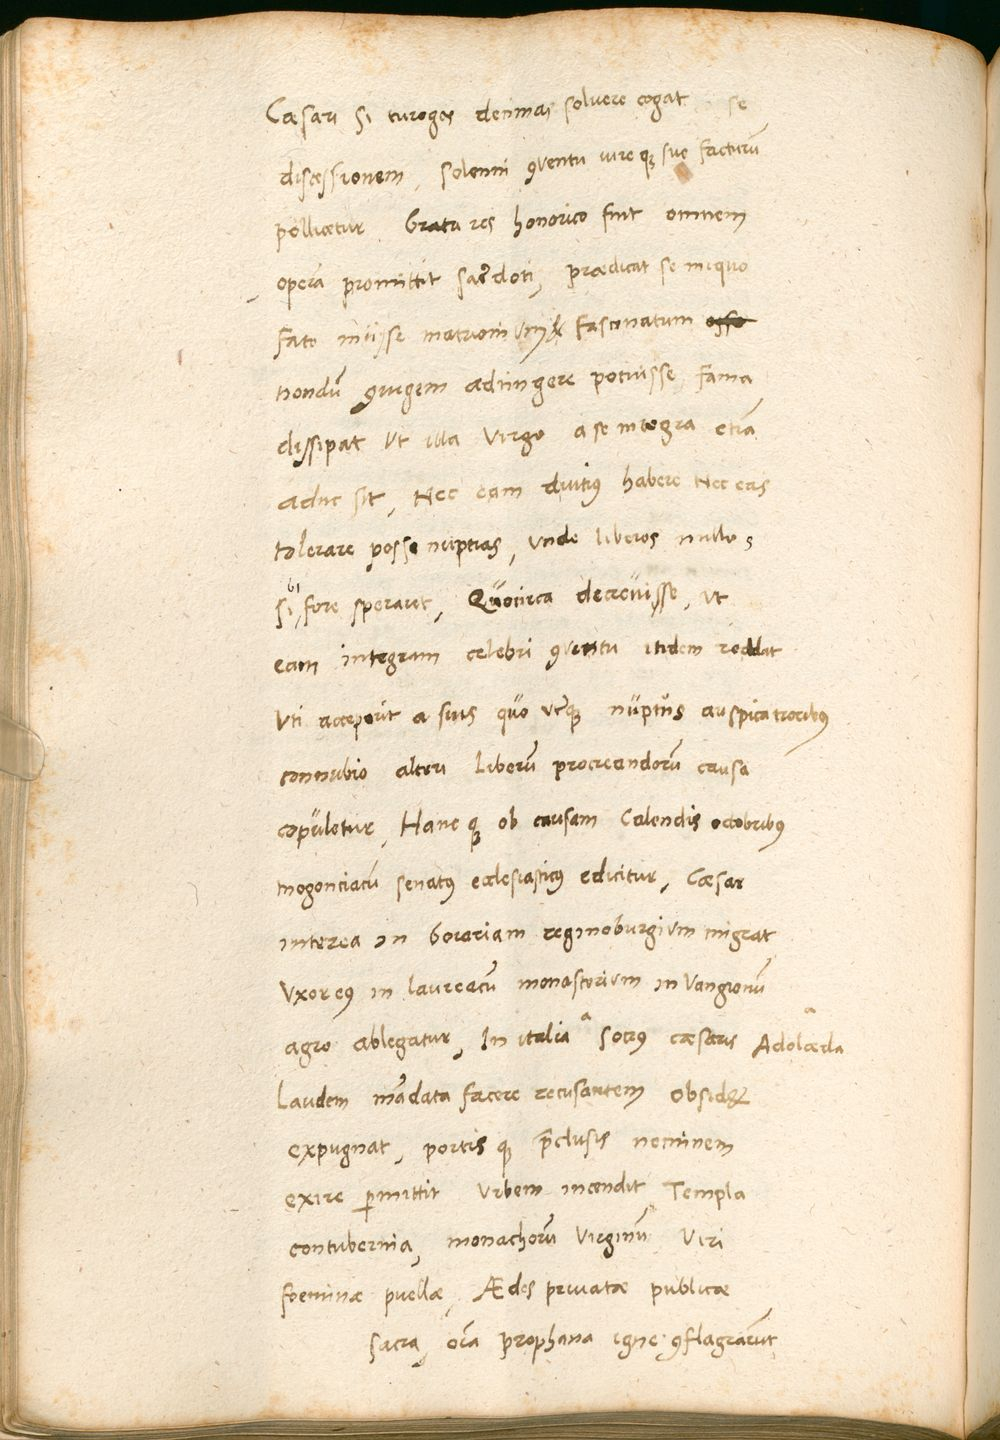 Cæsari si turogos decimas solvere cogat se
discessionem, solenni ꝯventu iureqꝫ suo facturū
pollicetur Grata res honorico fuit omnem
operā promittit sacerdoti, prædicat se iniquo
fato iniisse matrimonium & fascinatum
nondū ꝯiugem adtingere potuisse, fama
dissipat Ut illa Virgo a se integra etiā
aduc sit, Nec eam diutius habere Nec eas
tolerare posse nuptias, unde liberos nullos
sibi fore speraret, Quocirca decreuisse, ut
eam integram celebri ꝯventu itidem reddat
Uti acceperit a suis quo uterqꝫ nuptiis auspicatioribus
connubio alteri Liberū procreandorū causa
copuletur, Hancqꝫ ob causam Calendis octobribus
mogonciacū senatus ecclesiasticus edicitur, Cæsar
interea in boiariam reginoburgium migrat
Uxor eius in laureacū monasterium in Vangionū
agro ablegatur, In italia a socrus cæsaris Adolæida
Laudem mādata facere recusantem obsidet
expugnat, portisqꝫ p̄clusis neminem
exire permittit Urbem incendit Templa
contubernia, monachorū Virginū Viri
foeminæ puellæ, Ædes privatæ publicæ
sacra, oīa prophana igne ꝯflagrarūt